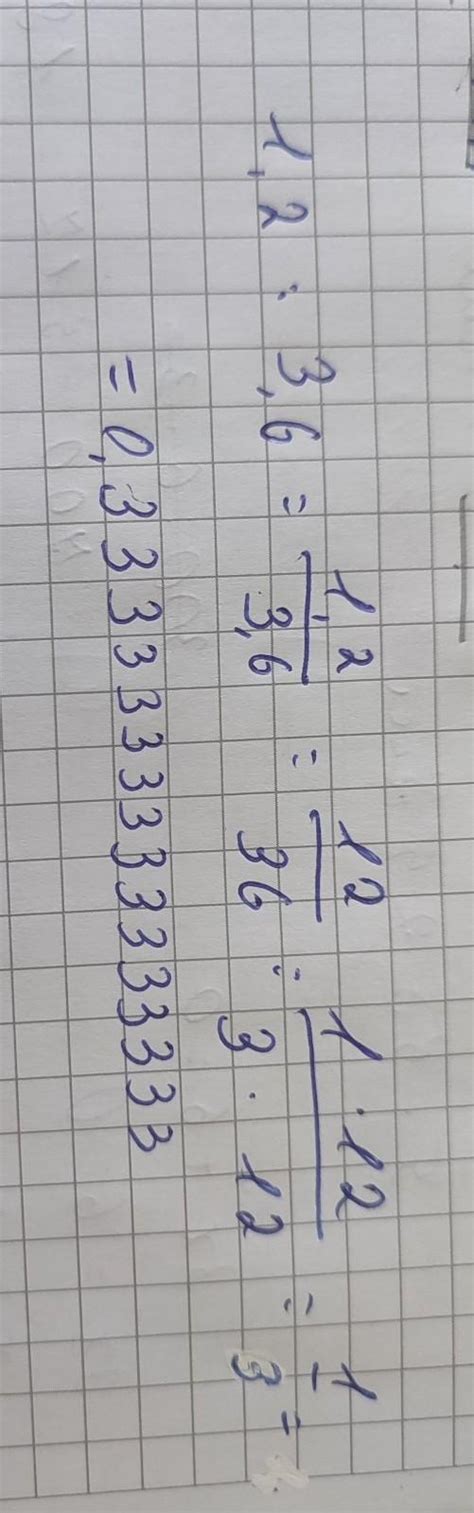 1,2 : 3,6 = 1,2/3,6 = 12/36 = 1·12/3·12 = 1/3 =
= 0,33333333333333